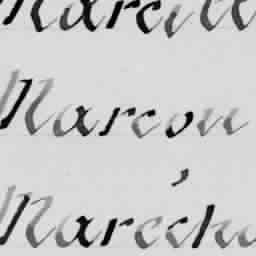 Marcill
Marcou
Maréch